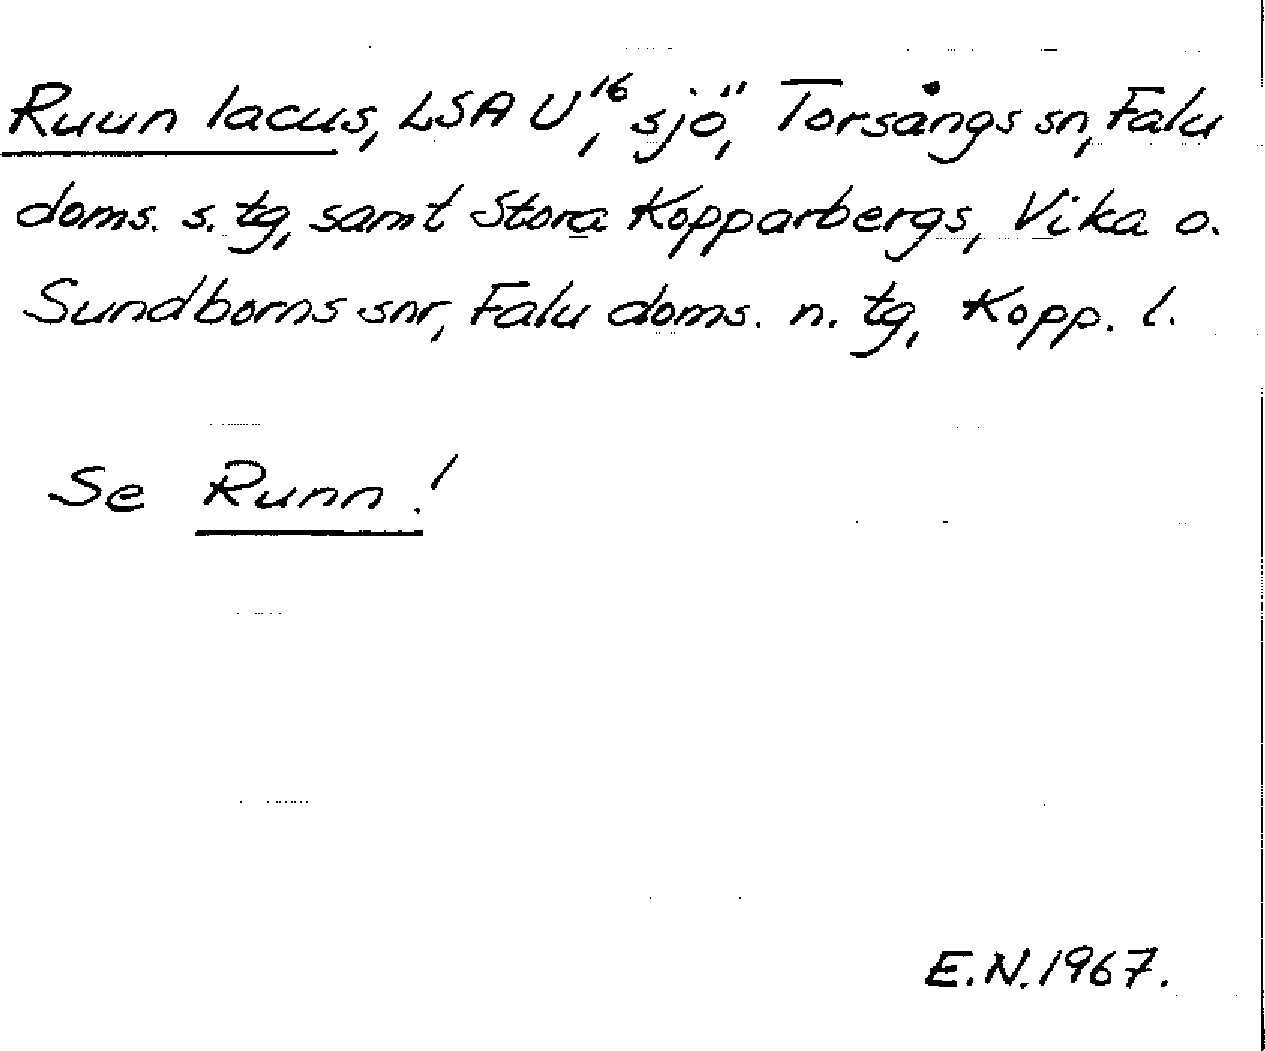 Ruun lacus, LSA U¹⁶, sjö, Torsångs sn, Falu
doms. s. tg, samt Stora Kopparbergs, Vika o.
Sundborns snr, Falu doms. n. tg, Kopp. l.
Se Runn!
E.N. 1967.